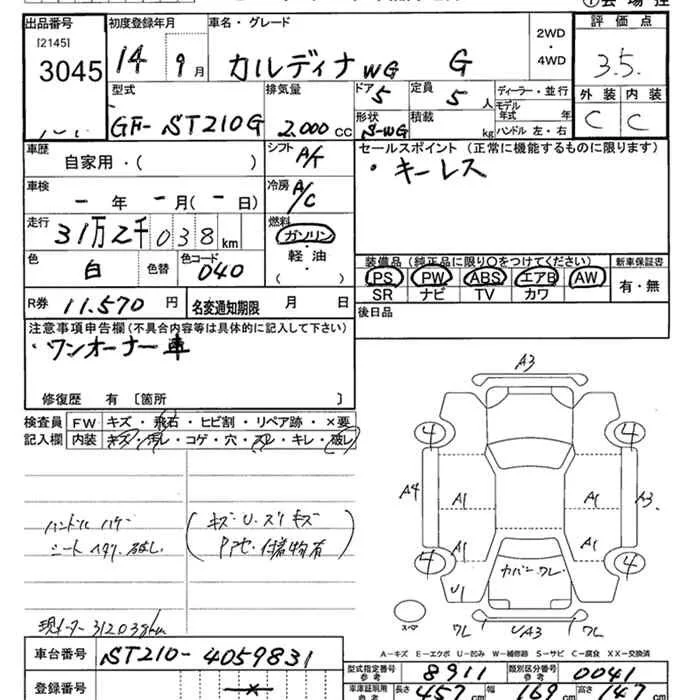 出品番号
[2145]
3045
初度登録年月
14 9月
車名・グレード
カルディナ WG G
2WD
・
4WD
評価点
3.5.
外装 内装
C C
型式
GF- ST210G
排気量
2.000 CC
ドア 5
定員 5 人
形状 S-WG
積載 kg
ディーラー・並行
モデル年式 年
ハンドル 左・右
車歴
自家用・( )
シフト A/T
セールスポイント (正常に機能するものに限ります)
・キーレス
車検
- 年 - 月( - 日)
冷房 A/C
走行
31万2千038km
燃料
ガソリン
・
軽油
・
( )
色 白 色替 色コード 040
装備品 (純正品に限り○をつけてください)
新車保証書
PS PW ABS エアB AW
SR ナビ TV カワ
有・無
R券 11.570 円
名変通知期限 月 日
後日品
注意事項申告欄(不具合内容等は具体的に記入して下さい)
・ワンオーナー車
修復歴 有 [箇所
検査員
記入欄
FW キズ・飛石・ヒビ割・リペア跡・×要
内装 キズ・汚レ・コゲ・穴・スレ・キレ・破レ
ハンドル ハゲ
シート ヘタリ. 破レ.
(キズ・U・スリキズ
付着物有)
現メーター 312038km
A3
4 4
A4 A1 A1 A3
A1 A1
4 4
U1 カバーワレ
スペア
ワレ UA3 ワレ
A-キズ E-エクボ U-凹み W-補修跡 S-サビ C-腐食 XX-交換済
車台番号 ST210-4059831
登録番号
型式指定番号 参考 8911
類別区分番号 参考 0041
車庫証明用 参考 長さ 457 cm 幅 169 cm 高さ 147 cm